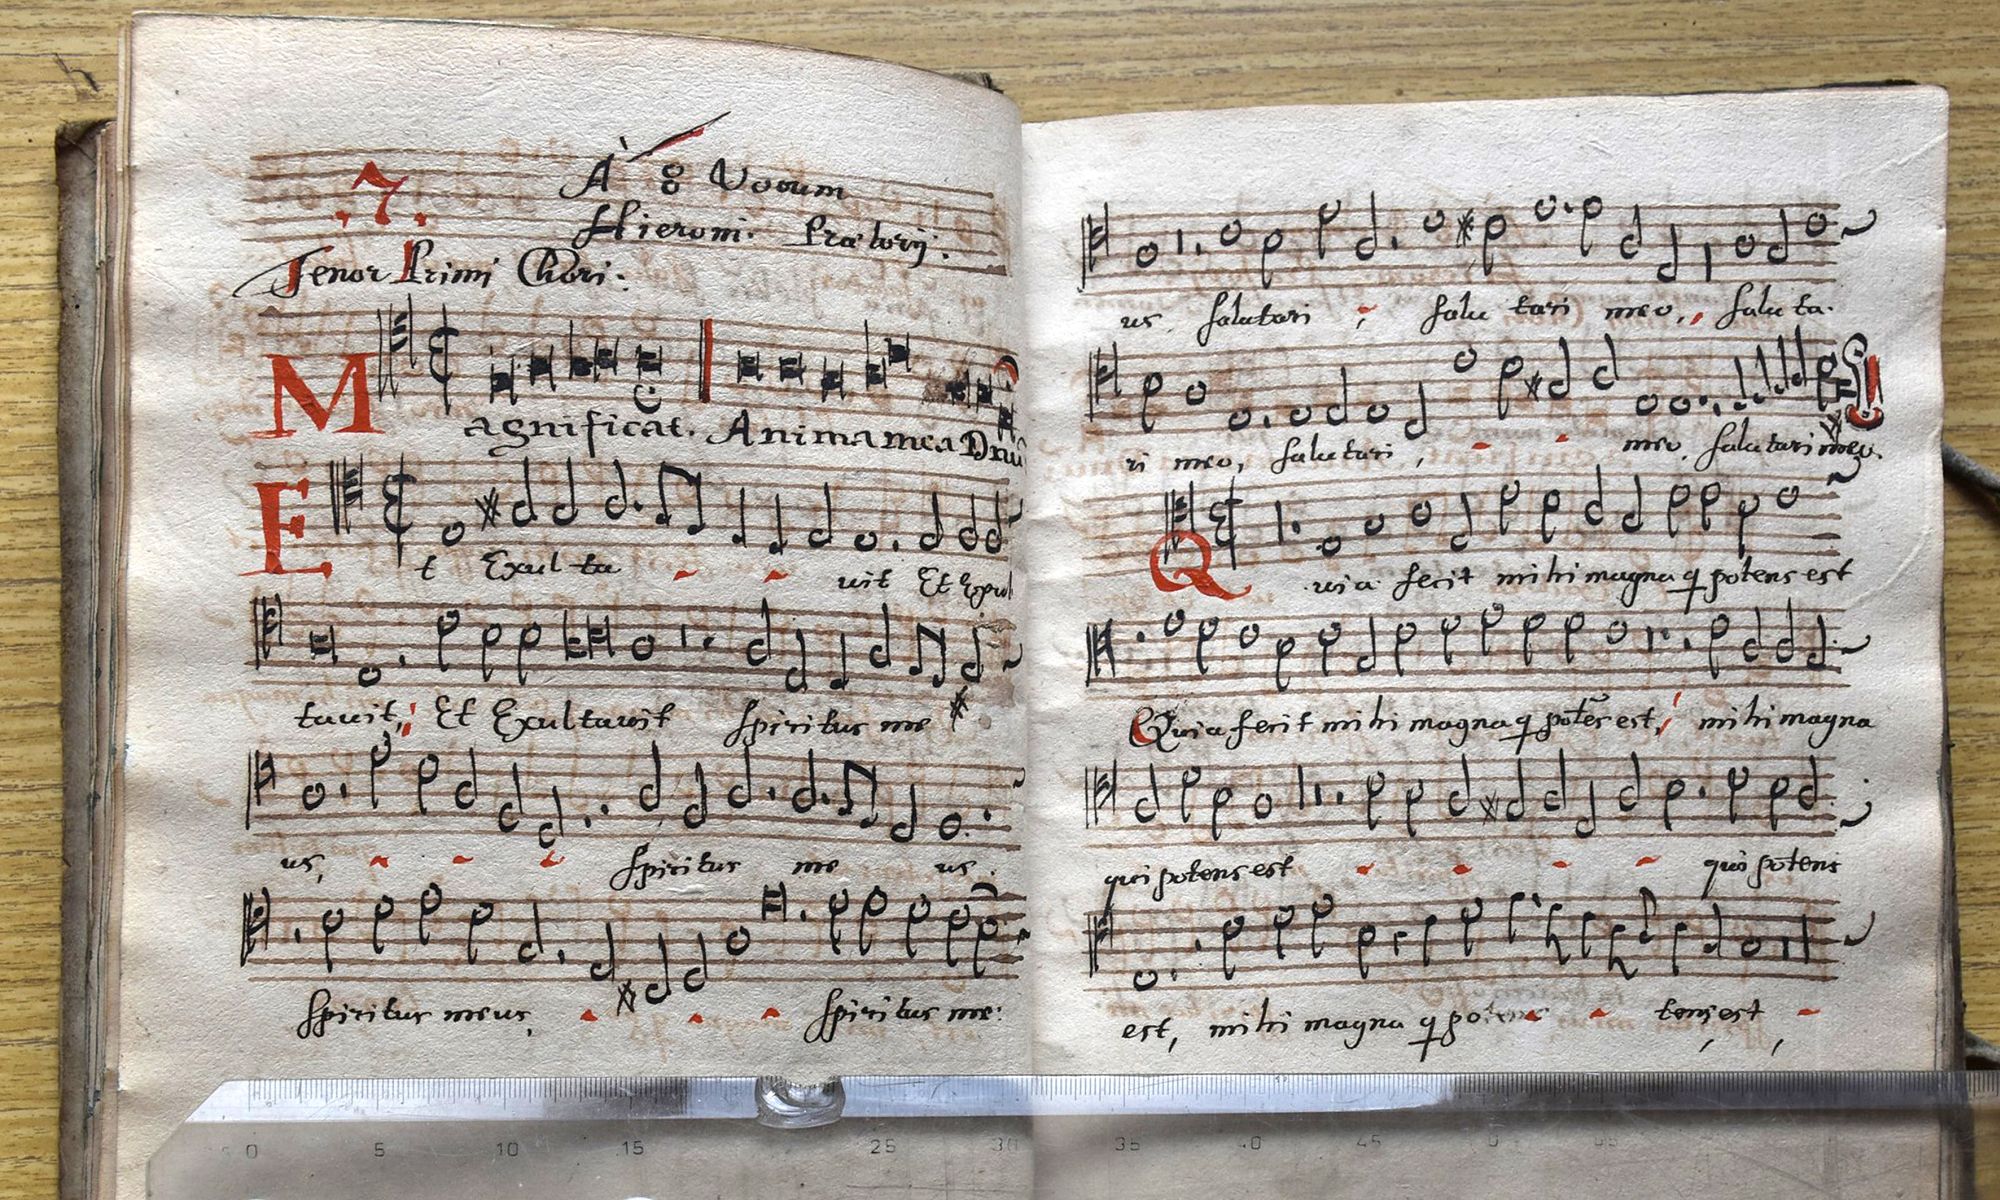 .7.
A 8 Vocum
Hieroni: Prætorij.
Tenor Primi Chori:
Magnificat. Anima mea Dnū
Et Exulta uit Et Exul
tauit, Et Exultauit spiritus me
us, spiritus me us.
spiritus meus, spiritus me:
us. salutari, salu tari meo, saluta.
ri meo, salutari, meo, salutari meo.
Quia fecit mihi magna q potens est
Quia fecit mihi magna q potēs est, mihi magna
qui potens est qui potens
est, mihi magna q potens tens, est,
0 5 10 15 25 30 35 40 45